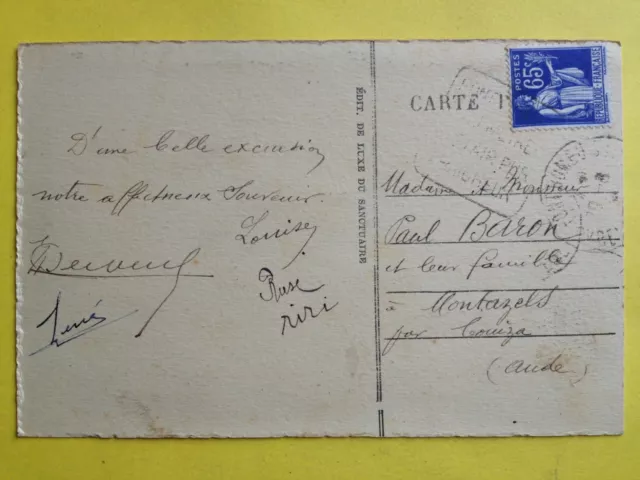 D'une belle excursion
notre affectueux Souvenir.
Louise
Rose
riri
René
ÉDIT. DE LUXE DU SANCTUAIRE
CARTE
POSTES
65c
RÉPUBLIQUE FRANÇAISE
Madame et Monsieur
Paul Baron
et leur famille
à Montazels
par Couiza
(Aude)